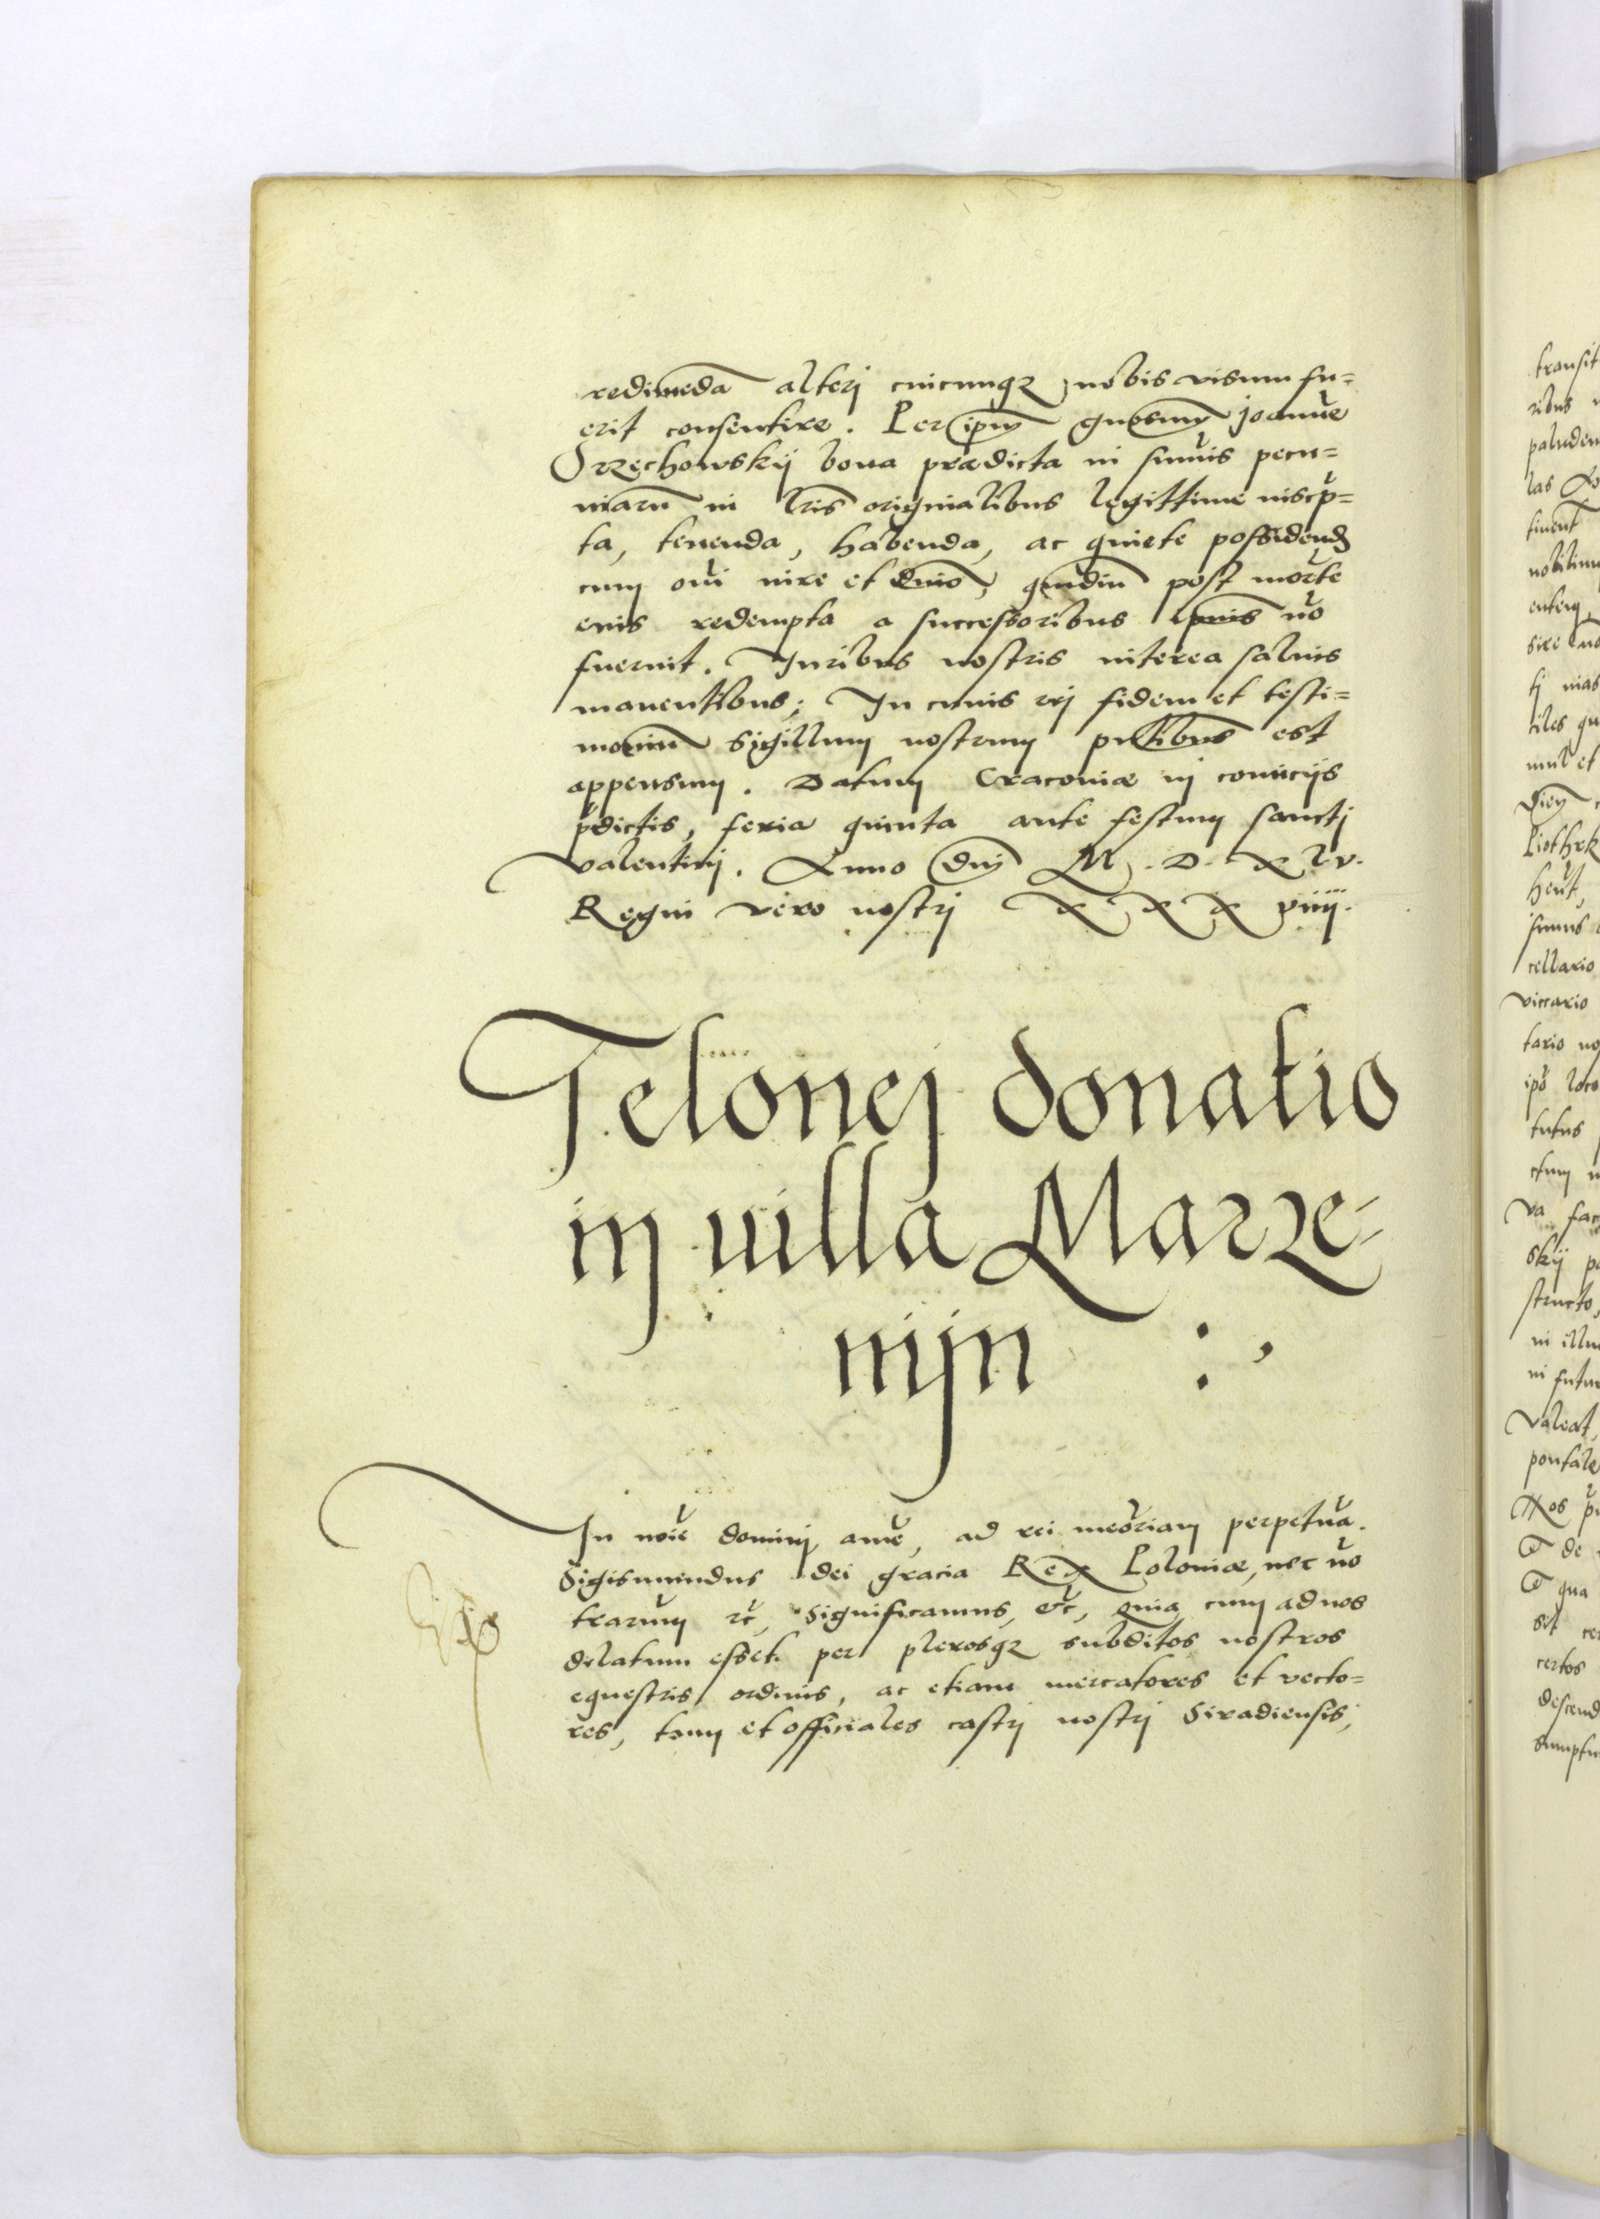 redimẽda alterj cuicunqz nobis visum fu=
erit consentire. Per ipm̃ gñosum Joannẽ
Orzechowskij bona prædicta in sum̃is pecu=
niarũ in lr̃is originalibus legittime inscp̃=
ta, tenenda, habenda, ac quiete possidend
cum om̃i iure et dñio, qmdiu post mortẽ
eius redempta a successoribus ipsius nõ
fuerint. Juribus nostris interea saluis
manentibus; In cuius rej fidem et testi=
moniũ Sigillum nostrum pñtibus est
appensum. Datum Cracoviæ in comiciis
p̃dictis, feria quinta ante festum sanctj
Valentinj. Anno dnj M. D. XLV.
Regni vero nostrj XXXviiij.
Telonej donatio
in uilla Marze=
nijn
In noĩe dominj amẽ, ad rei meõriam perpetuã.
Sigismundus dei gracia Rex Poloniæ, nec nõ
terrarum &c̃, Significamus, &c̃, Quia cum ad nos
delatum esset per plerosqz subditos nostros
equestris ordinis, ac etiam mercatores et vecto=
res, tum et officiales castrj nostrj Siradiensis,
transit
ribus
paludem
las
tinent
nobilium
tj
tiles
mul et
Piothrk
sumus
cellario
viccario
tario no
ipõ loco
tutus
ctum
va
skij
structo,
in
in
Valeat,
pontale
Nos
de
qua
sit
certos
descend
sumptu